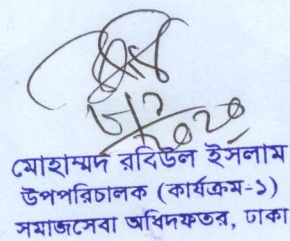 ২০২০
মোহাম্মদ রবিউল ইসলাম
উপপরিচালক (কার্যক্রম-১)
সমাজসেবা অধিদফতর, ঢাকা